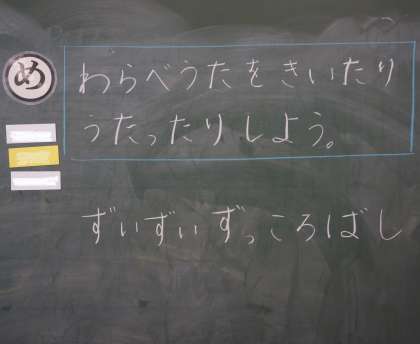 め
わらべうたをきいたり
うたったりしよう。
ずいずいずっころばし